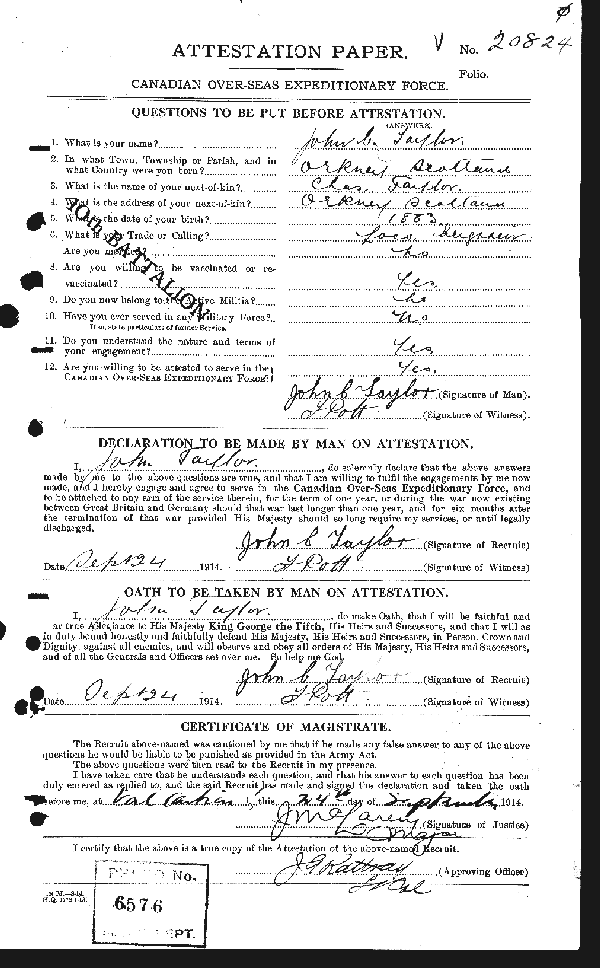 ATTESTATION PAPER.
No. 20824
Folio.
CANADIAN OVER-SEAS EXPEDITIONARY FORCE.
QUESTIONS TO BE PUT BEFORE ATTESTATION.
(ANSWERS.
1. What is your name? John C. Taylor.
2. In what Town, Township or Parish, and in
what Country were you born? Orkney Scotland
3. What is the name of your next-of-kin? Chas. Taylor.
4. What is the address of your next-of-kin? Orkney Scotland
5. What is the date of your birth? 1883
6. What is your Trade or Calling? Loco.
Are you married? No
8. Are you willing to be vaccinated or re-
vaccinated? Yes
9. Do you now belong to the Active Militia? No
10. Have you ever served in any Military Force? No
If so, state particulars of former Service.
11. Do you understand the nature and terms of
your engagement? Yes
12. Are you willing to be attested to serve in the
CANADIAN OVER-SEAS EXPEDITIONARY FORCE? Yes.
BATTALION
John C Taylor (Signature of Man).
Pott (Signature of Witness).
DECLARATION TO BE MADE BY MAN ON ATTESTATION.
I, John Taylor, do solemnly declare that the above answers
made by me to the above questions are true, and that I am willing to fulfil the engagements by me now
made, and I hereby engage and agree to serve in the Canadian Over-Seas Expeditionary Force, and
to be attached to any arm of the service therein, for the term of one year, or during the war now existing
between Great Britain and Germany should that war last longer than one year, and for six months after
the termination of that war provided His Majesty should so long require my services, or until legally
discharged.
John C Taylor (Signature of Recruit)
Date Sep 1914. Pott (Signature of Witness)
OATH TO BE TAKEN BY MAN ON ATTESTATION.
I, John Taylor, do make Oath, that I will be faithful and
bear true Allegiance to His Majesty King George the Fifth, His Heirs and Successors, and that I will as
in duty bound honestly and faithfully defend His Majesty, His Heirs and Successors, in Person, Crown and
Dignity, against all enemies, and will observe and obey all orders of His Majesty, His Heirs and Successors,
and of all the Generals and Officers set over me. So help me God.
John C Taylor (Signature of Recruit)
Date Sep 1914. Pott (Signature of Witness)
CERTIFICATE OF MAGISTRATE.
The Recruit above-named was cautioned by me that if he made any false answer to any of the above
questions he would be liable to be punished as provided in the Army Act.
The above questions were then read to the Recruit in my presence.
I have taken care that he understands each question, and that his answer to each question has been
duly entered as replied to, and the said Recruit has made and signed the declaration and taken the oath
before me, at Valcartier, this 24th day of September 1914.
(Signature of Justice)
Major
I certify that the above is a true copy of the Attestation of the above-named Recruit.
J G Rattray (Approving Officer)
Lt Col
No.
6576
PT.